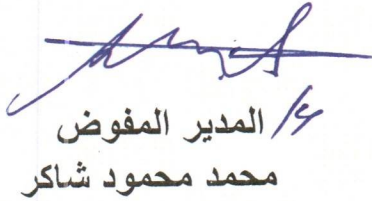 المدير المفوض
محمد محمود شاكر